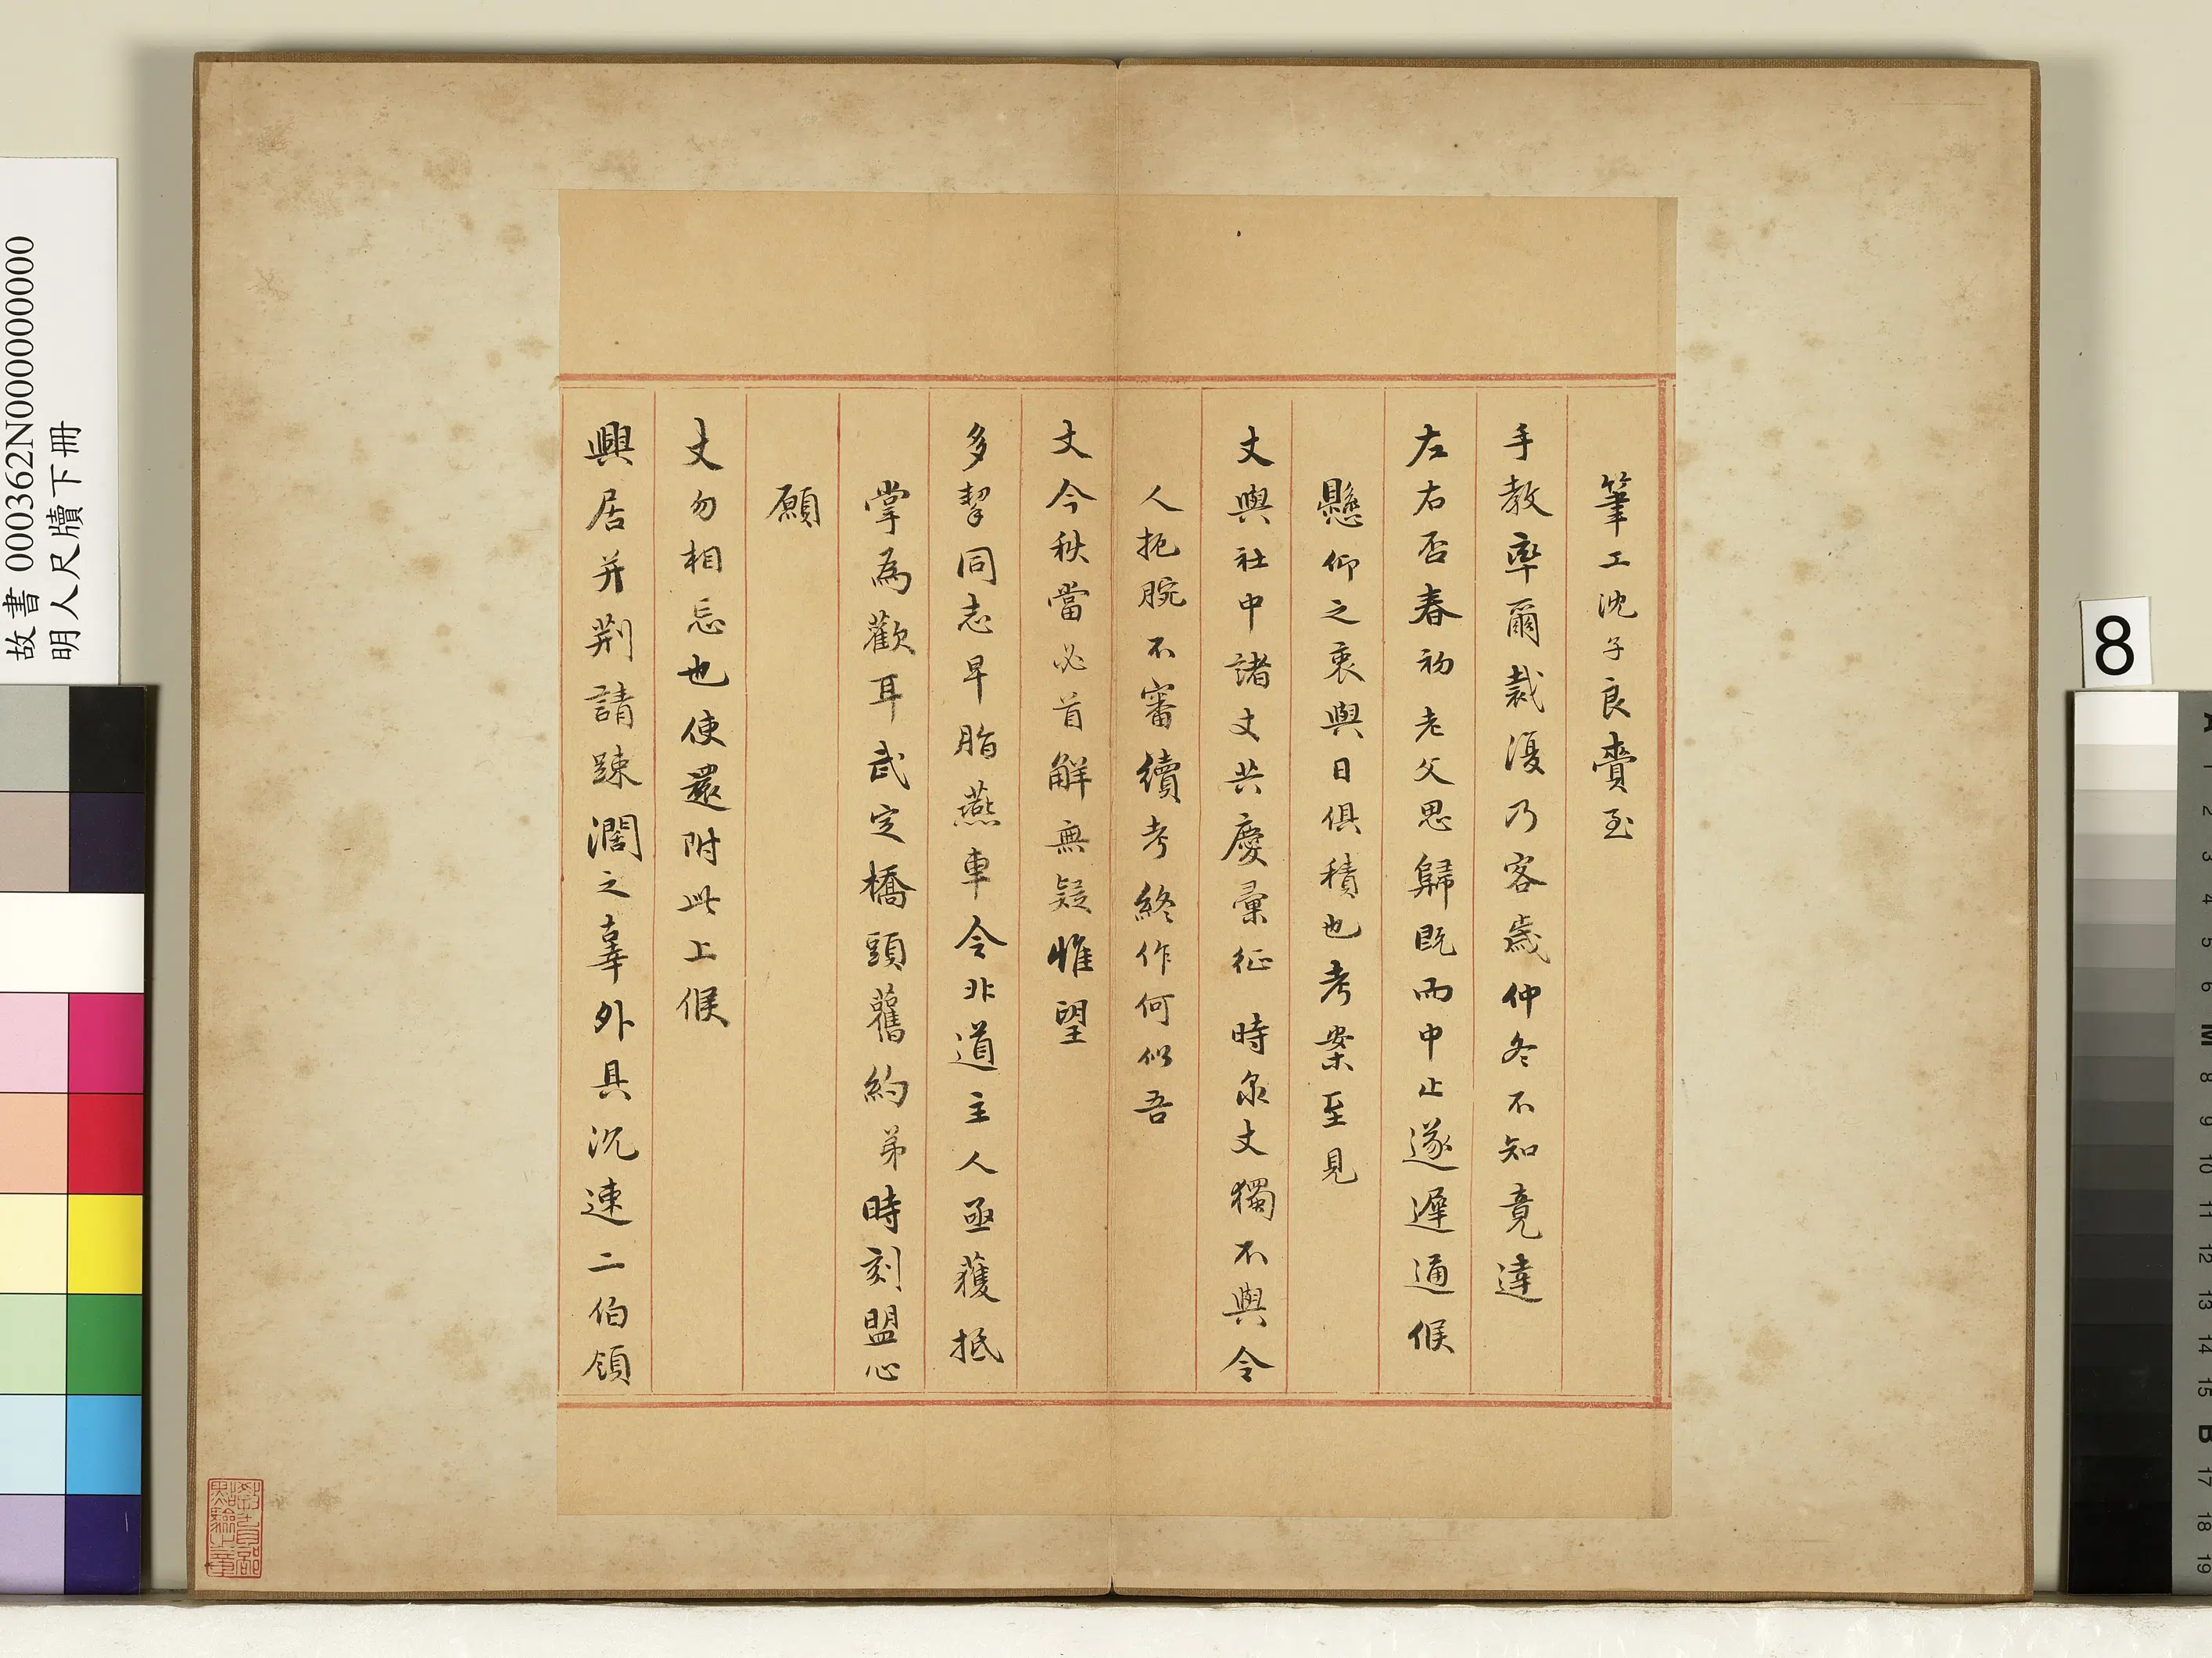 筆工沈子良賫至
手教率爾裁復乃客歲仲冬不知竟達
左右否春初老父思歸既而中止遂遲通候
懸仰之衷與日俱積也考案至見
丈與社中諸丈共慶彙征時泉丈獨不與令
人扼腕不審續考終作何似吾
丈今秋當必首解無疑惟望
多挈同志早脂燕車令北道主人亟獲抵
掌為歡耳武定橋頭舊約弟時刻盟心
願
丈勿相忘也使還附此上候
興居并荆請踈濶之辜外具沉速二伯領
故書 000362N000000000
明人尺牘下冊
8
A
1
2
3
4
5
6
M
8
9
10
11
12
13
14
15
B
17
18
19